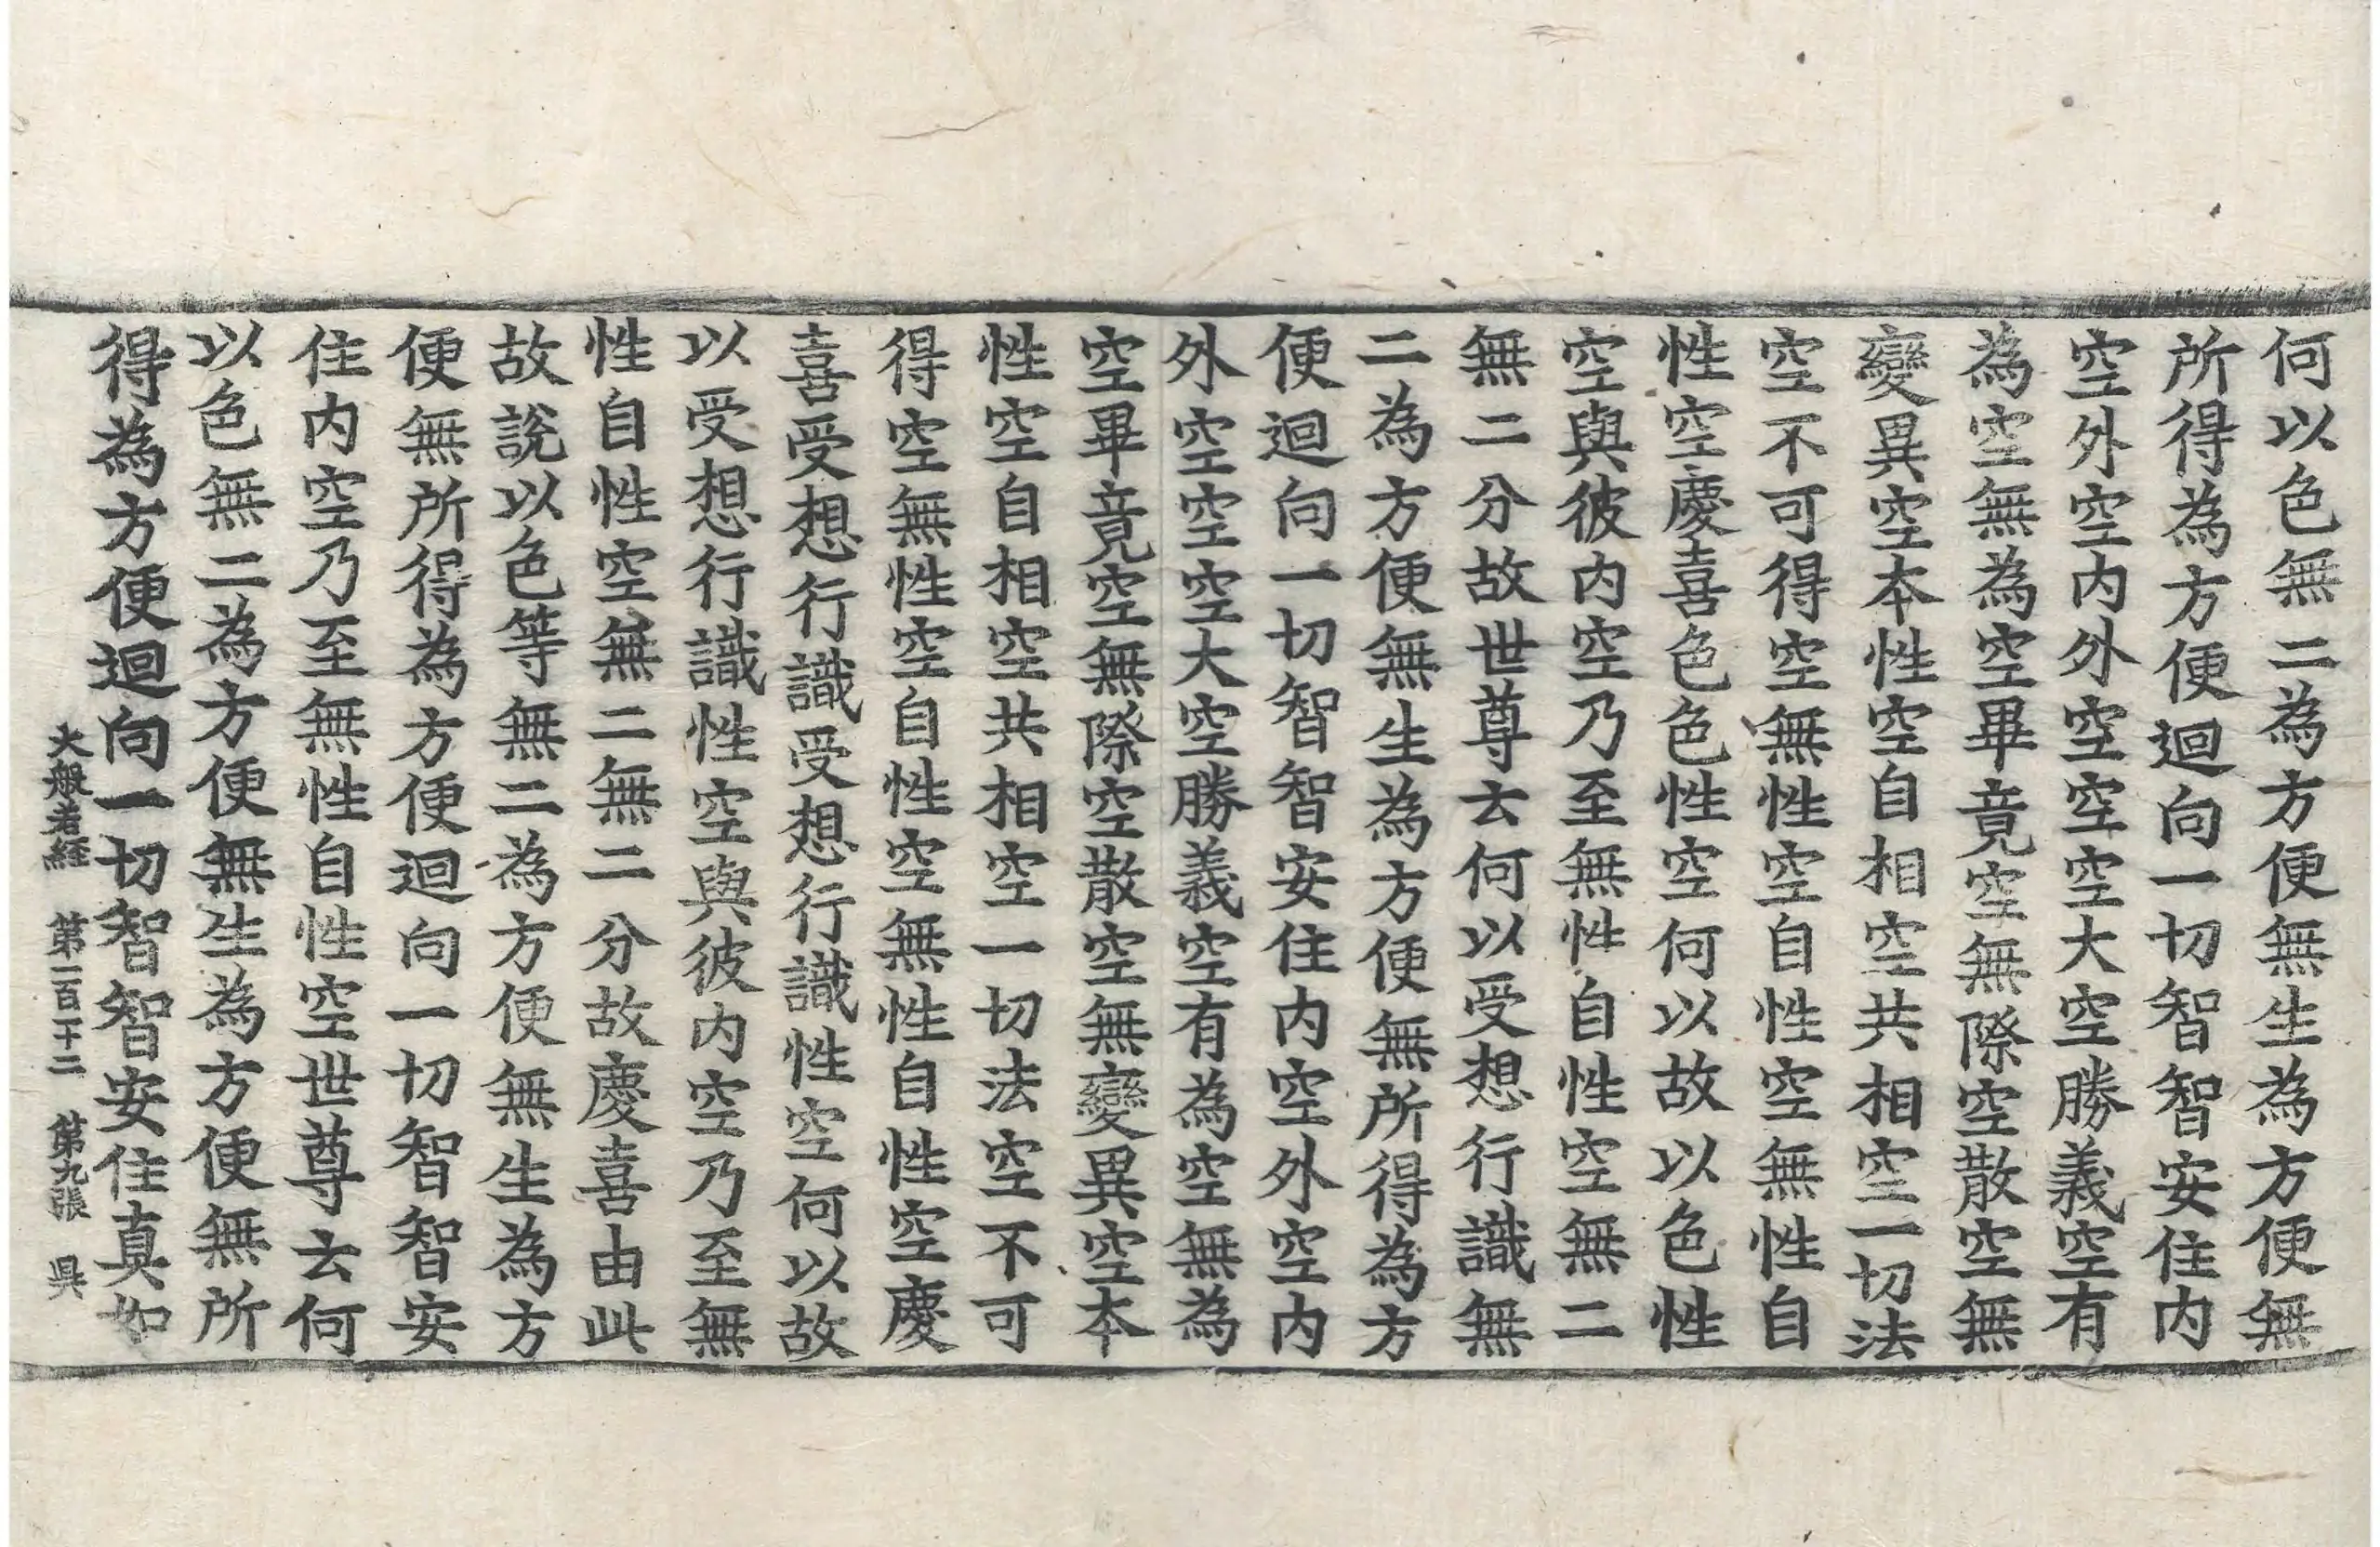 何以色無二為方便無生為方便無
所得為方便迴向一切智智安住内
空外空内外空空空大空勝義空有
為空無為空畢竟空無際空散空無
變異空本性空自相空共相空一切法
空不可得空無性空自性空無性自
性空慶喜色色性空何以故以色性
空與彼内空乃至無性自性空無二
無二分故世尊云何以受想行識無
二為方便無生為方便無所得為方
便迴向一切智智安住内空外空内
外空空空大空勝義空有為空無為
空畢竟空無際空散空無變異空本
性空自相空共相空一切法空不可
得空無性空自性空無性自性空慶
喜受想行識受想行識性空何以故
以受想行識性空與彼内空乃至無
性自性空無二無二分故慶喜由此
故說以色等無二為方便無生為方
便無所得為方便迴向一切智智安
住内空乃至無性自性空世尊云何
以色無二為方便無生為方便無所
得為方便迴向一切智智安住真如
大般若経 第一百一十二 第九張 㫷